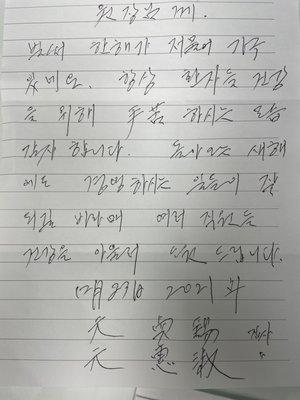 원장님 께.
벌써 한해가 저물어 가구
있네요. 항상 환자들 건강
을 위해 手苦 하시는 모습
감사 합니다. 돌아오는 새해
에도 경영하시는 일들이 잘
되길 바라며 여러 직원들
건강을 아울러 드립니다.
12月 29日 2021年
元 錫
元 惠 淑